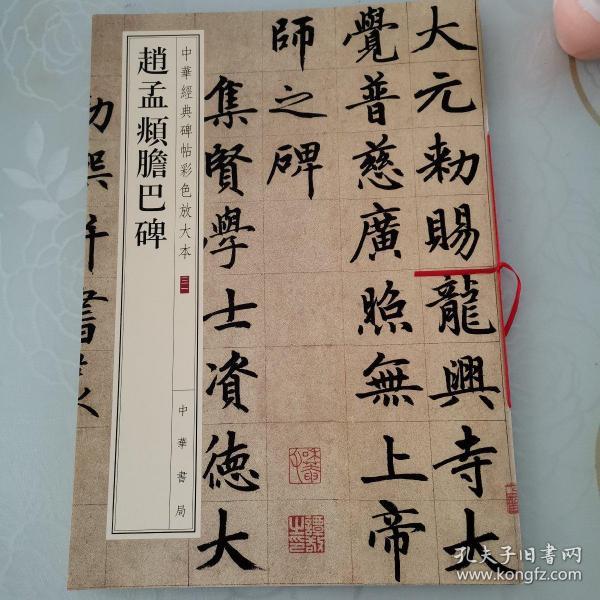 大元勅賜龍興寺大
覺普慈廣照無上帝
師之碑
集賢學士資德大
趙孟頫膽巴碑
中華經典碑帖彩色放大本
三一
中華書局
孔夫子旧書网
www.kongfz.com